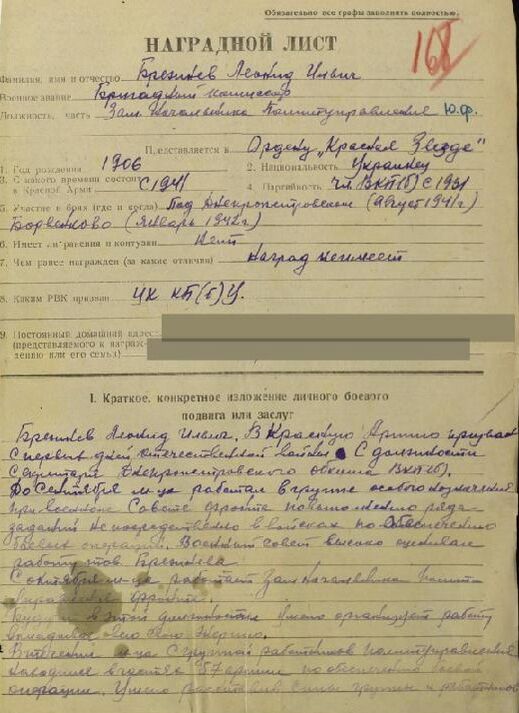 Обязательно все графы заполнять полностью.
НАГРАДНОЙ ЛИСТ
168
Фамилия, имя и отчество Брежнев Леонид Ильич
Военное звание Бригадный Комиссар
Должность, часть Зам. Начальника Политуправления Ю.Ф.
Представляется к Ордену „Красная Звезда"
1. Год рождения 1906
2. Национальность Украинец
3. С какого времени состоит в Красной Армии С 1941
4. Партийность чл. ВКП(б) С 1931
5. Участие в боях (где и когда) Под Днепропетровском (Август 1941 г.)
Борвенково (Январь 1942 г.)
6. Имеет ли ранения и контузии Нет
7. Чем ранее награжден (за какие отличия) Наград не имеет
8. Каким РВК призван ЦК КП(б)У.
9. Постоянный домашний адрес
(представляемого к награждению или его семьи)
I. Краткое, конкретное изложение личного боевого
подвига или заслуг
Брежнев Леонид Ильич. В Красную Армию призван
с первых дней отечественной войны С должности
Секретаря Днепропетровского обкома ВКП(б).
До Сентября м-ца работал в группе особого назначения
при военном Совете фронта по выполнению ряда
заданий непосредственно в войсках по обеспечению
боевых операций. Военный совет высоко оценивал
работу тов Брежнева
С октября м-ца работает Зам Начальника Полит-
управления фронта.
в этой должностью умело организует работу
вкладывая всю свою энергию.
В течении м-ца С группой работников политуправления
находился в частях 57 армии по обеспечению боевой
операции. Умело расставив силы группы и работников